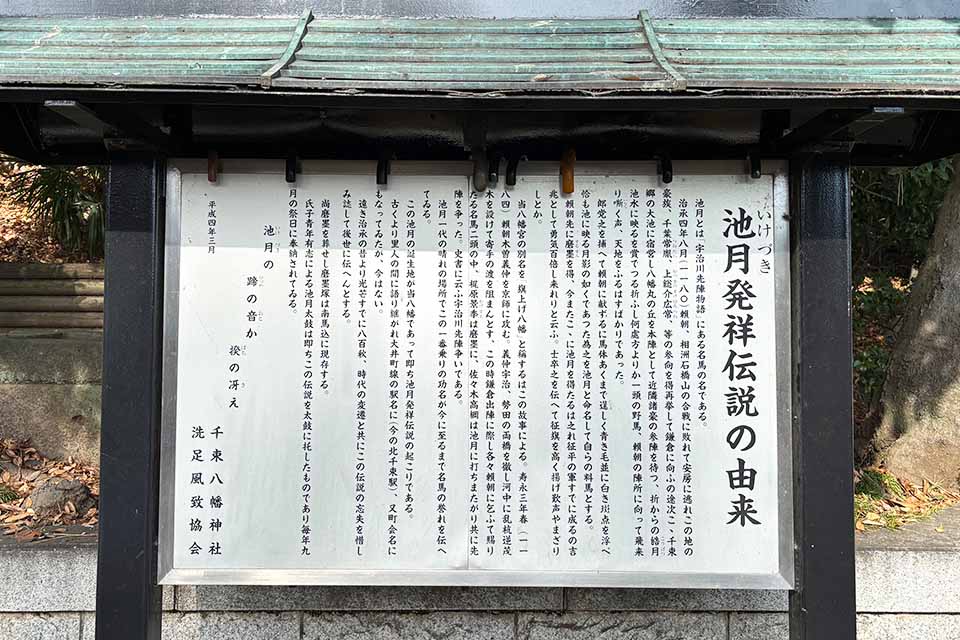 いけづき
池月発祥伝説の由来
池月とは『宇治川先陣物語』にある名馬の名である。
治承四年八月（一一八〇）頼朝、相洲石橋山の合戦に敗れて安房に逃れこの地の
豪族、千葉常胤、上総介広常、等の参向を得再挙して鎌倉に向ふの途次こゝ千束
郷の大池に宿営し八幡丸の丘を本陣として近隣諸豪の参陣を待つ、折からの皓月
池水に映るを賞でつる折ふし何処方よりか一頭の野馬、頼朝の陣所に向って飛来
り嘶く声、天地をふるはすばかりであった。
郎党之を捕へて頼朝に献ずるに馬体あくまで逞しく青き毛並に白き斑点を浮べ
恰も池に映る月影の如くであつた為之を池月と命名して自らの料馬とする。
頼朝先に磨墨を得、今またこゝに池月を得たるは之れ征平の軍すでに成るの吉
兆として勇気百倍し来れりと云ふ。士卒之を伝へて征旗を高く揚げ歓声やまざり
しとか。
当八幡宮の別名を『旗上げ八幡』と称するはこの故事による。寿永三年春（一一
八四）頼朝木曽義仲を京師に攻む。義仲宇治、勢田の両橋を徹し河中に乱杭逆茂
木を設けて寄手の渡を阻まんとす、この時鎌倉出陣に際し各々頼朝に乞ふて賜り
たる名馬二頭の中、梶原景季は磨墨に、佐々木高綱は池月に打ちまたがり共に先
陣を争った。史書に云ふ宇治川先陣争いである。
池月一代の晴れの場所でこの一番乗りの功名が今に至るまで名馬の誉れを伝へ
てゐる。
この池月の誕生地が当八幡であって即ち池月発祥伝説の起こりである。
古くより里人の間に語り継がれ大井町線の駅名に（今の北千束駅）、又町会名に
もなってゐたが、今はない。
遠き治承の昔より光芒すでに八百秋、時代の変遷と共にこの伝説の忘失を惜し
み誌して後世に伝へんとする。
尚磨墨を葬りし磨墨塚は南馬込に現存する。
氏子青年有志による池月太鼓は即ちこの伝説を太鼓に托したものであり毎年九
月の祭日に奉納されてゐる。
池月の 蹄の音か 撥の冴え
平成四年三月
千束八幡神社
洗足風致協会